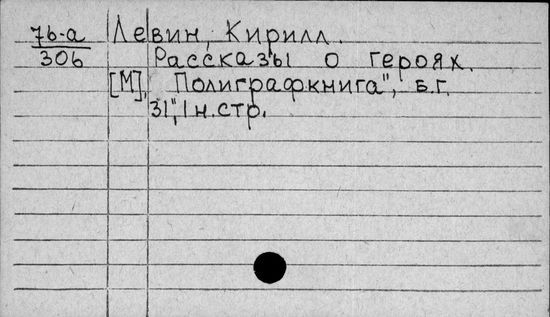 76-а Левин, Кирилл.
306 Рассказы о героях.
[М], Полиграфкнига", б.г.
31", 1 н.стр.